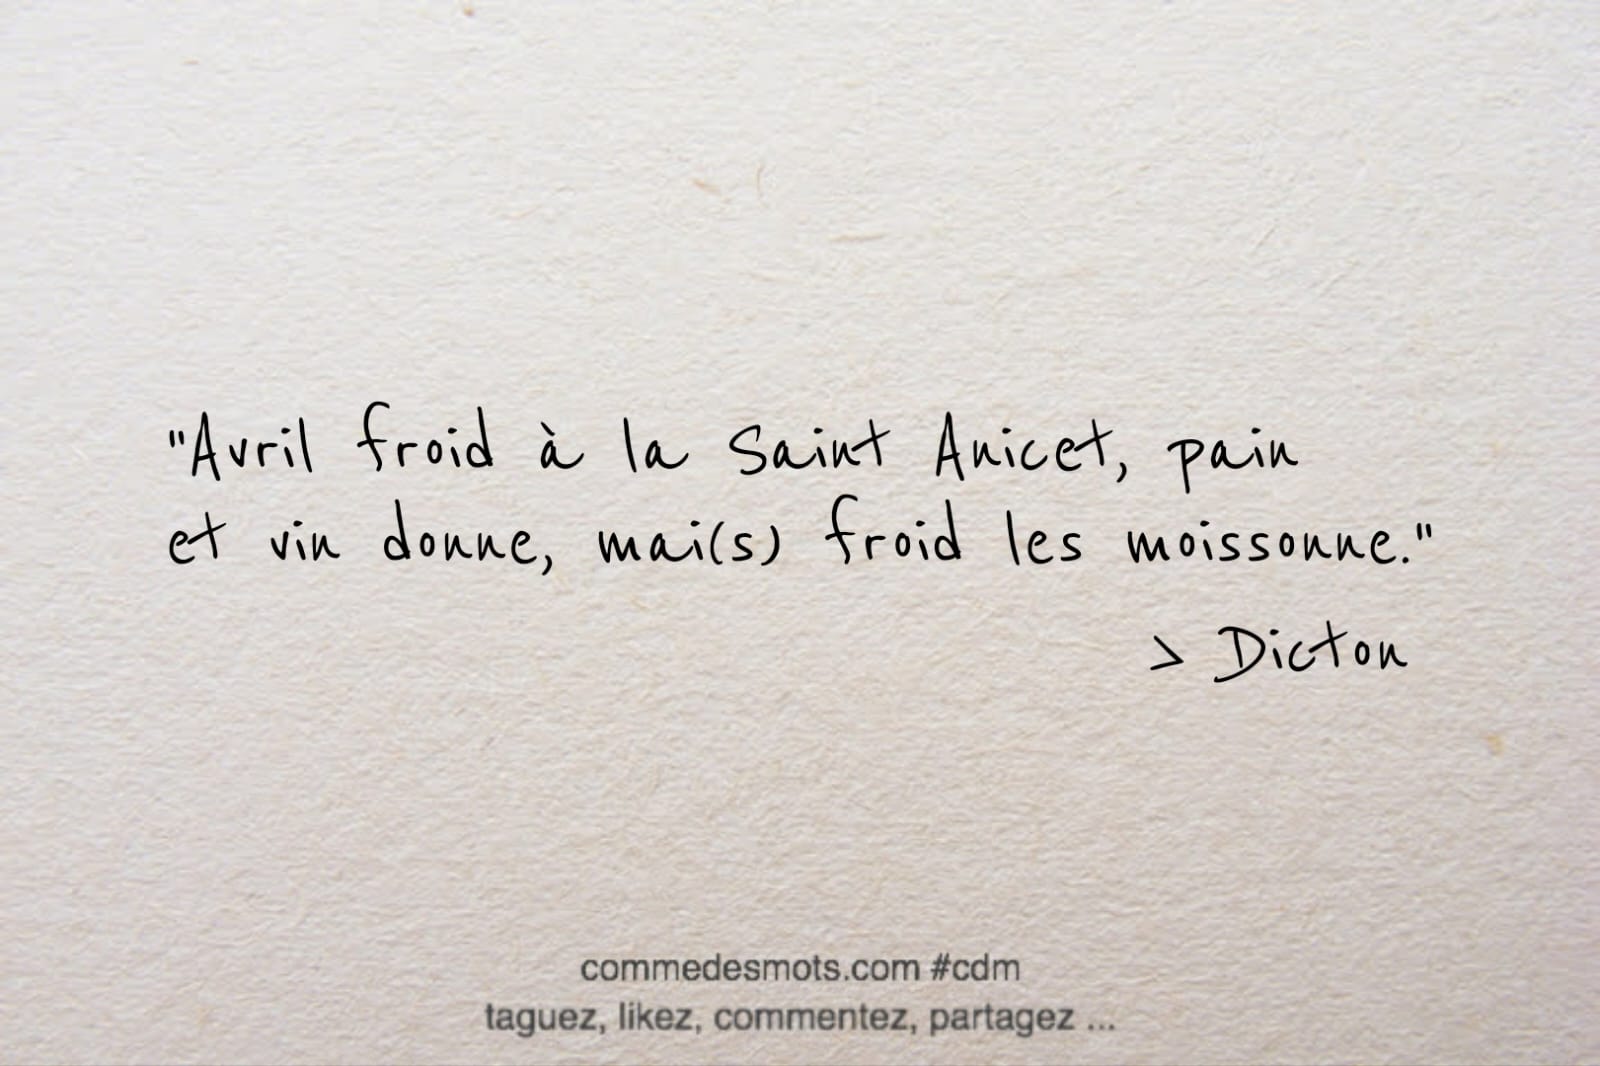 "Avril froid à la Saint Anicet, pain
et vin donne, mai(s) froid les moissonne."
> Dicton
commedesmots.com #cdm
taguez, likez, commentez, partagez ...